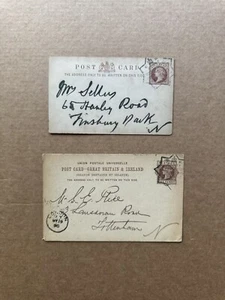 POST CARD
THE ADDRESS ONLY TO BE WRITTEN ON THIS SIDE
Mrs Sellers
65 Hanley Road
Finsbury Park
N
UNION POSTALE UNIVERSELLE
POST CARD - GREAT BRITAIN & IRELAND
(GRANDE BRETAGNE ET IRLANDE)
THE ADDRESS ONLY TO BE WRITTEN ON THIS SIDE
Mr S. E. Rice
Road
Tottenham
N